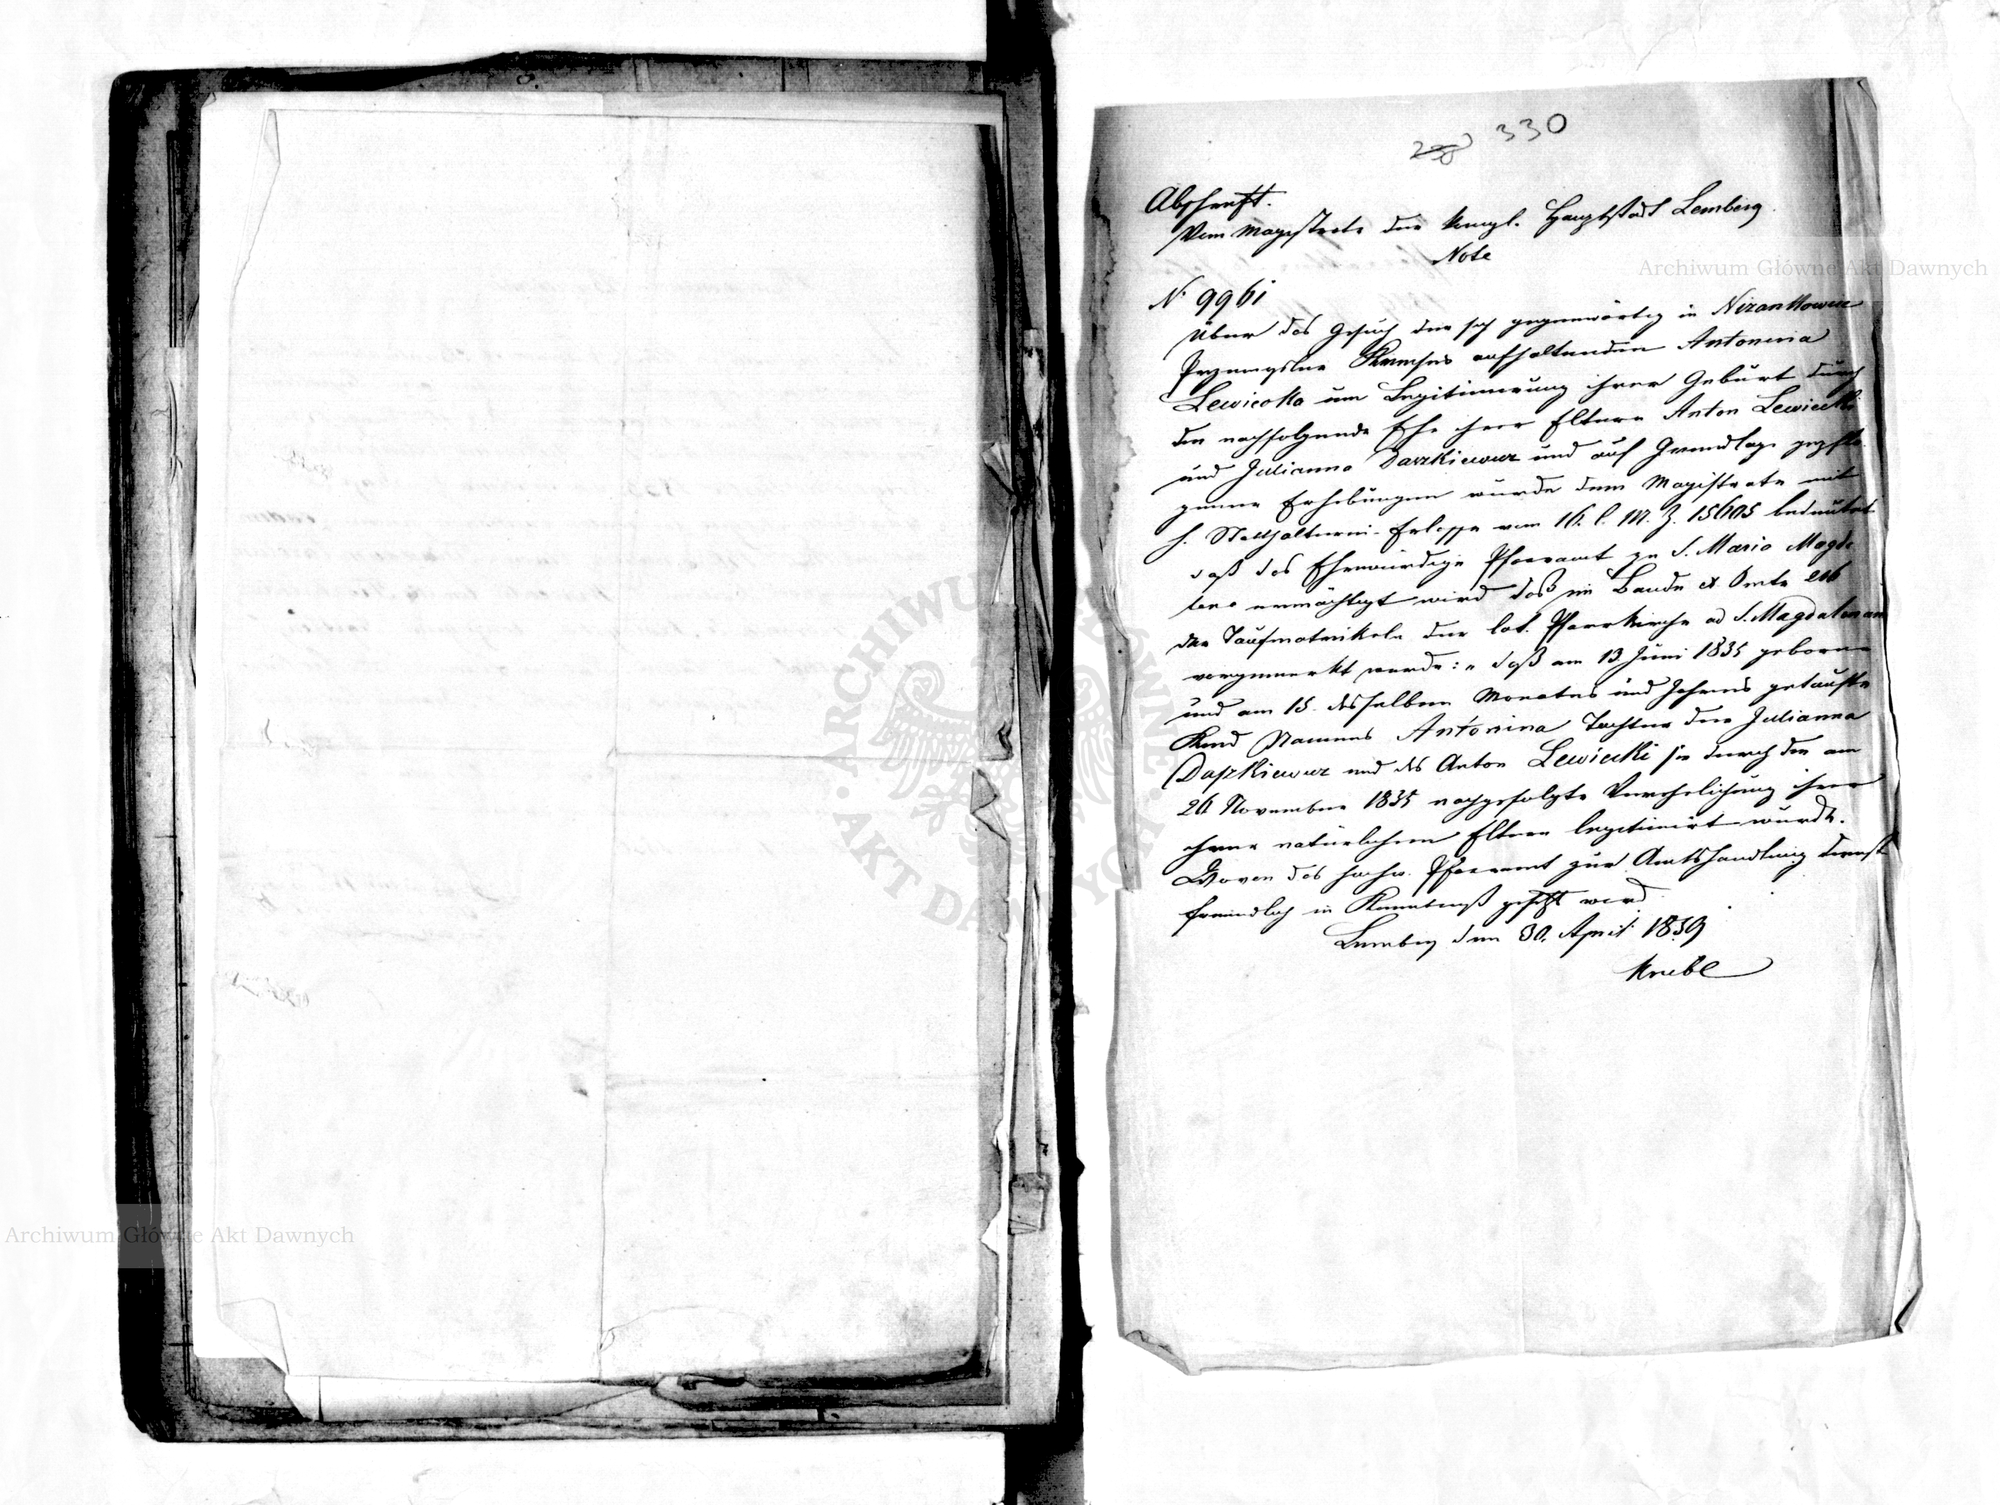 330
Abschrift.
Vom Magistrate der königl. Hauptstadt Lemberg.
Note
N. 9961
Über das Gesuch der sich gegenwärtig in Nizankowice
Przemysler Kreises aufhaltenden Antonina
Lewicka um Legitimirung ihrer Geburt durch
die nachfolgende Ehe ihrer Eltern Anton Lewicki
und Julianna Daszkiewicz und auf Grundlage gepflo
gener Erhebungen wurde dem Magistrate mit
h. Statthalterei-Erlasse vom 16. l. M. Z. 15605 bedeutet
daß das Ehrwürdige Pfarramt zu S. Maria Magda
lena ermächtigt wird daß im Bande
der Taufmatrikeln der lat. Pfarrkirche ad S. Magdalenam
vorgemerkt werde: „daß am 13. Juni 1835 geborene
und am 15. desselben Monates und Jahres getaufte
Kind Namens Antonina Tochter der Julianna
Daszkiewicz und des Anton Lewicki sie durch die am
26 November 1835 nachgefolgte Verehelichung ihrer
natürlichen Eltern legitimirt wurde.
Wovon das hochw. Pfarramt zur Amtshandlung dienst
freundlich in Kenntniß gesetzt wird
Lemberg den 30. April 1859
Archiwum Główne Akt Dawnych
Archiwum Główne Akt Dawnych
ARCHIWUM GŁÓWNE
AKT DAWNYCH